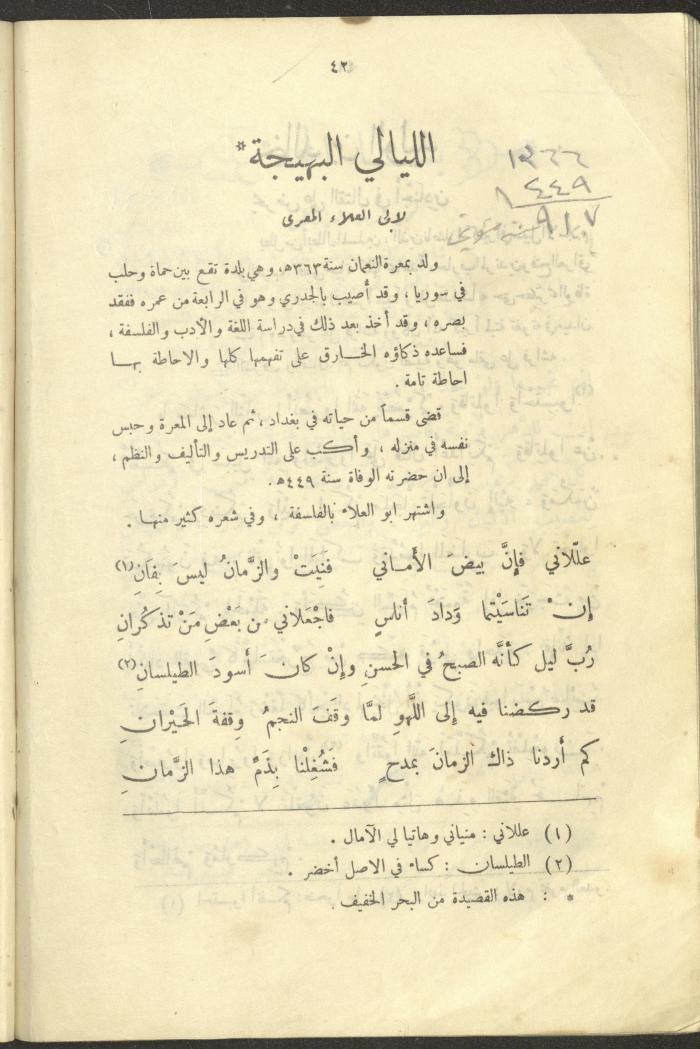 ٤٢
الليالي البهيجة*
لابى العلاء المعرى
ولد بمعرة النعمان سنة ٣٦٣ه، وهي بلدة تقع بين حماة وحلب
في سوريا، وقد أصيب بالجدري وهو في الرابعة من عمره ففقد
بصره، وقد أخذ بعد ذلك في دراسة اللغة والأدب والفلسفة،
فساعده ذكاؤه الخارق على تفهمها كلها والاحاطة بها
احاطة تامة.
قضى قسماً من حياته في بغداد، ثم عاد إلى المعرة وحبس
نفسه في منزله، وأكب على التدريس والتأليف والنظم،
إلى ان حضرته الوفاة سنة ٤٤٩ه.
واشتهر ابو العلاء بالفلسفة، وفي شعره كثير منها.
علّلاني فإنَّ بيضَ الأماني فَنِيَتْ والزَّمانُ ليسَ بِفَانِ (١)
إنْ تَنَاسَيْتُما وَدادَ أناسٍ فاجْعَلاني من بَعْضِ مَنْ تذكُرانِ
رُبَّ ليل كأنَّه الصبحُ في الحسنِ وإنْ كانَ أسودَ الطيلسانِ (٢)
قد ركضنا فيه إلى اللَّهوِ لمَّا وقَفَ النجمُ وِقفةَ الحَيْرانِ
كم أردنا ذاك الزمانَ بمدحٍ فَشُغِلْنا بِذَمِّ هذا الزَّمانِ
(١) عللاني: منياني وهاتيا لي الآمال.
(٢) الطيلسان: كساء في الاصل أخضر.
* : هذه القصيدة من البحر الخفيف.
٤٤٩
٩١٧